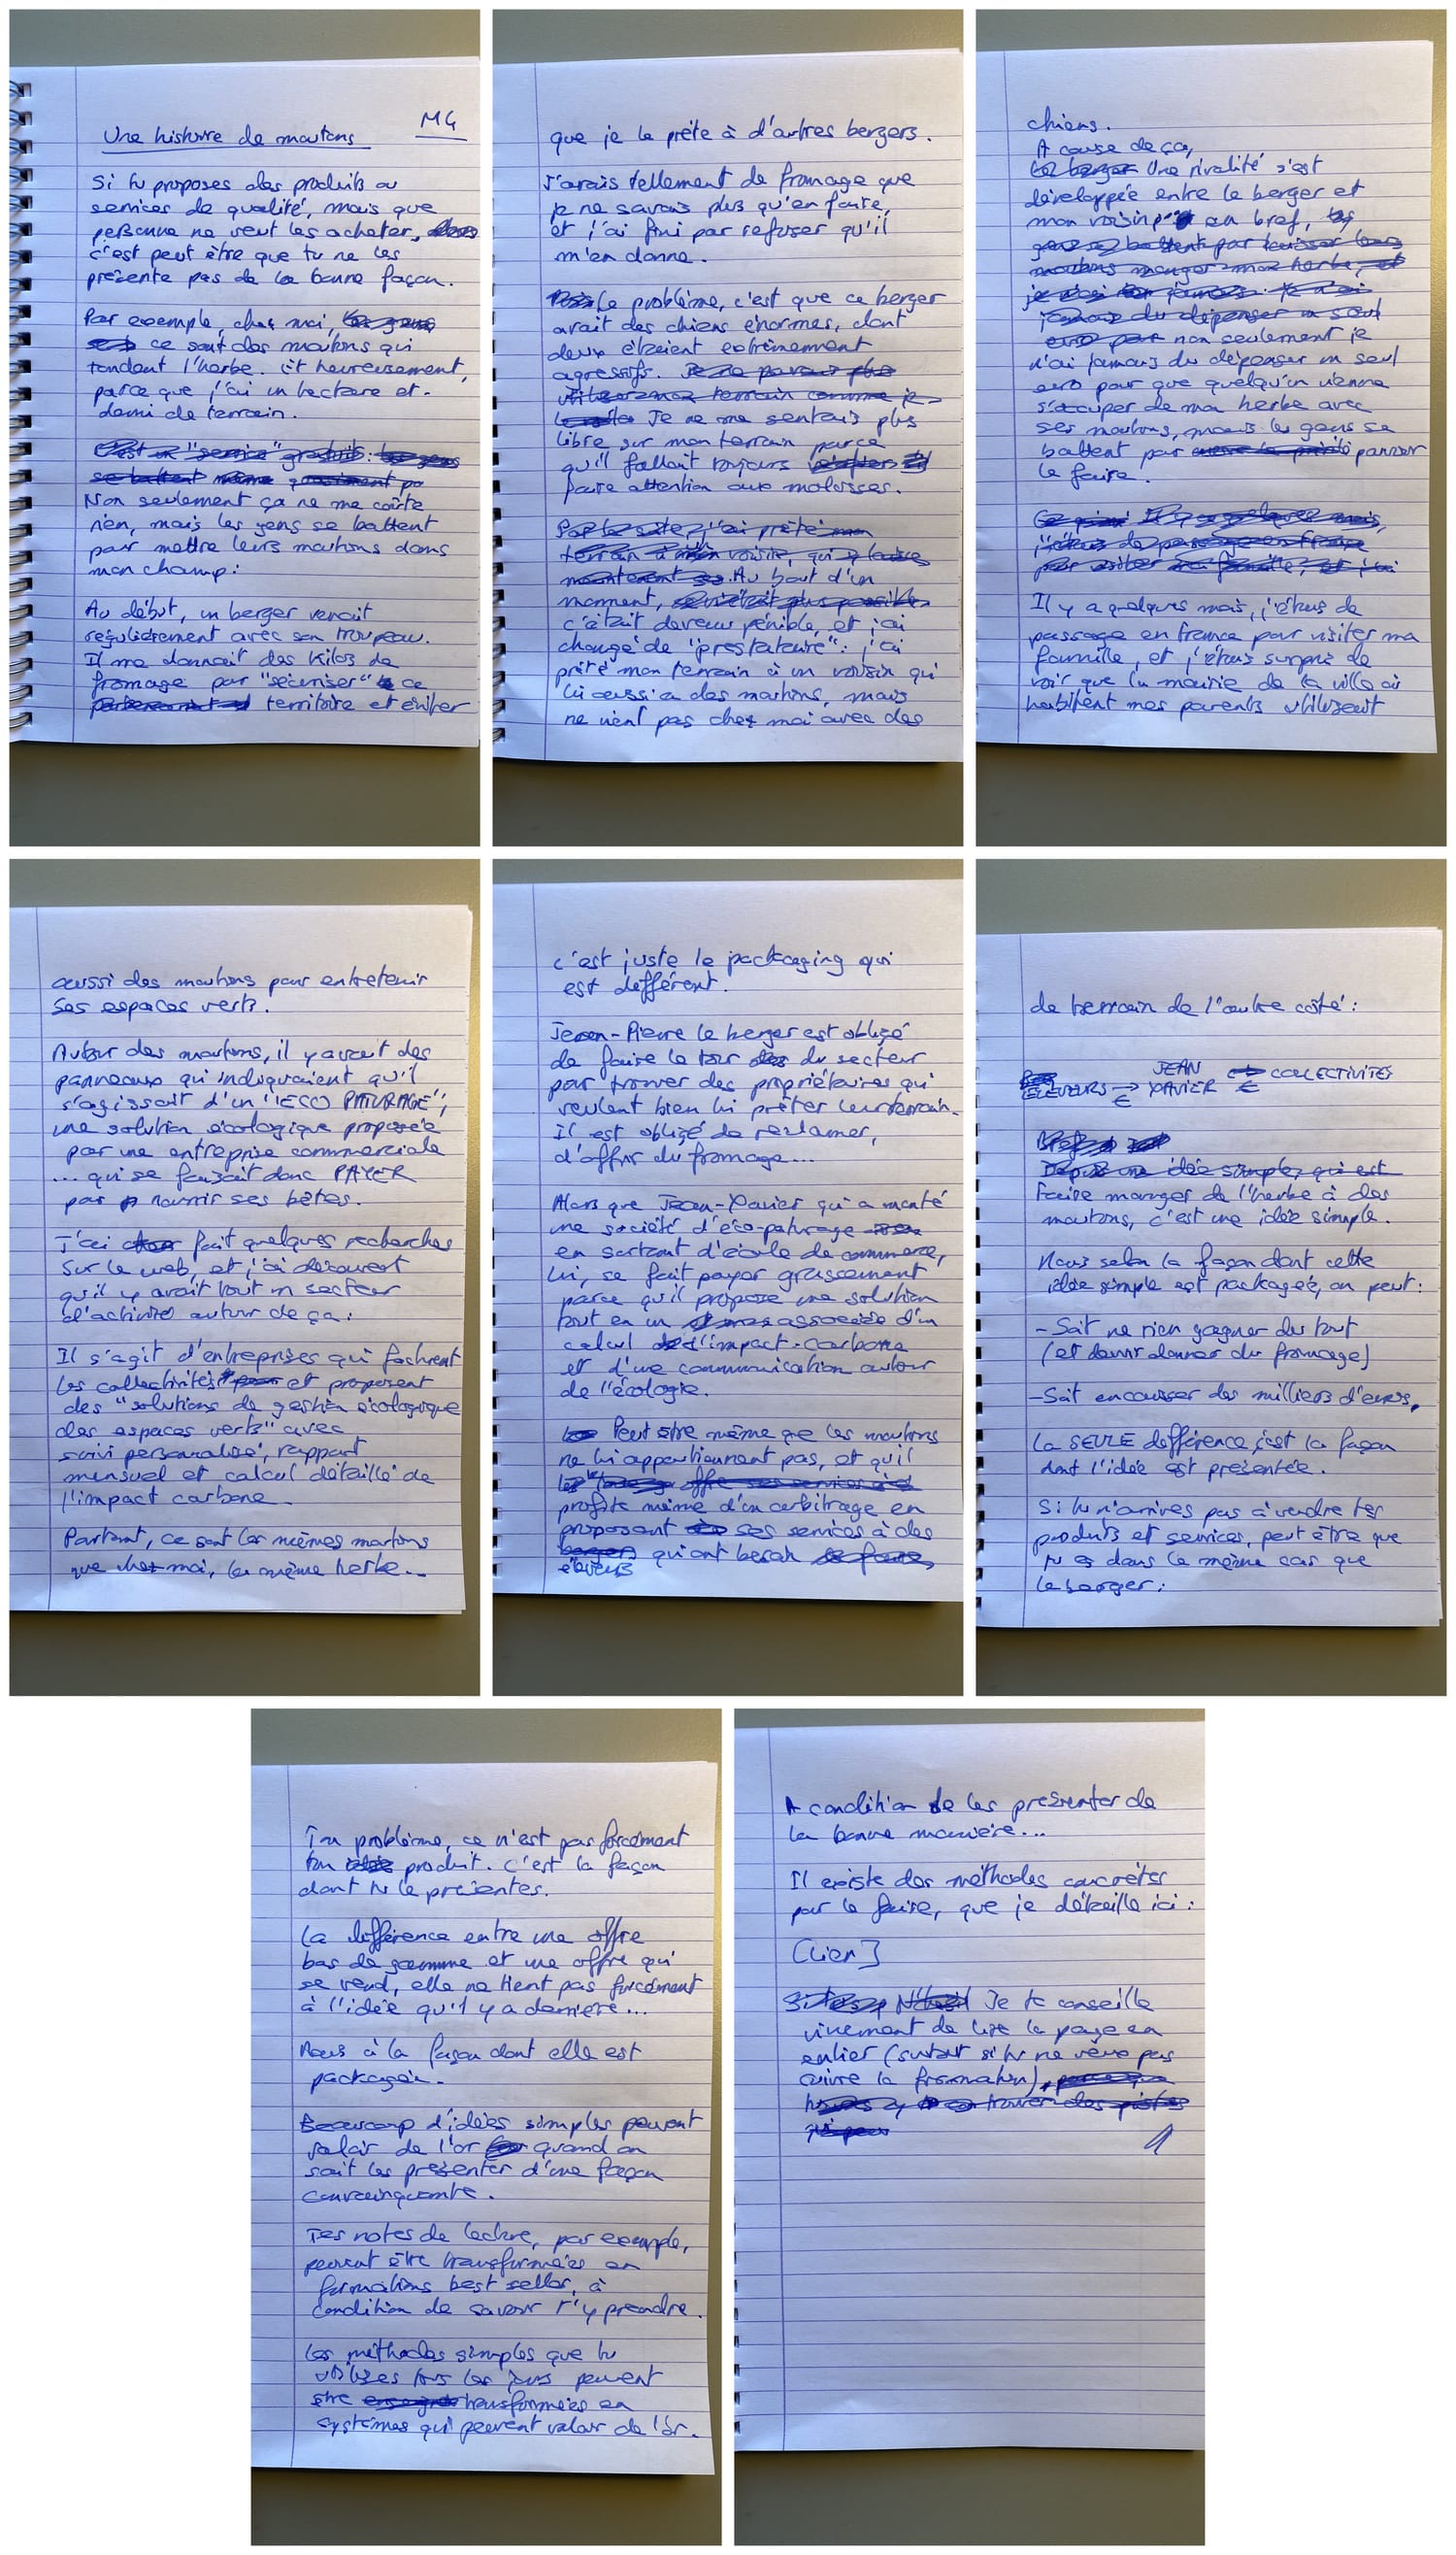 MG
Une histoire de moutons
Si tu proposes des produits ou
services de qualité, mais que
personne ne veut les acheter,
c'est peut être que tu ne les
présente pas de la bonne façon.
Par exemple, chez moi,
ce sont des moutons qui
tondent l'herbe. Et heureusement,
parce que j'ai un hectare et
demi de terrain.
C'est un "service" gratuit : les gens
se battent même
Non seulement ça ne me coûte
rien, mais les gens se battent
pour mettre leurs moutons dans
mon champ :
Au début, un berger venait
régulièrement avec son troupeau.
Il me donnait des kilos de
fromage pour "sécuriser" ce
territoire et éviter
que je le prête à d'autres bergers.
J'avais tellement de fromage que
je ne savais plus qu'en faire,
et j'ai fini par refuser qu'il
m'en donne.
Le problème, c'est que ce berger
avait des chiens énormes, dont
deux étaient extrêmement
agressifs. Je ne pouvais plus
utiliser mon terrain comme je
Je ne me sentais plus
libre sur mon terrain parce
qu'il fallait toujours
faire attention aux molosses.
Par la suite, j'ai prêté mon
terrain à mon voisin, qui y laisse
maintenant ses Au bout d'un
moment, ce n'était plus possible
c'était devenu pénible, et j'ai
changé de "prestataire" : j'ai
prêté mon terrain à un voisin qui
lui aussi a des moutons, mais
ne vient pas chez moi avec des
chiens.
A cause de ça,
Le berger Une rivalité s'est
développée entre le berger et
mon voisin en bref, les
gens se battent pour laisser leurs
moutons manger mon herbe, et
je n'ai jamais. Je n'ai
jamais du dépenser un seul
euro pour non seulement je
n'ai jamais du dépenser un seul
euro pour que quelqu'un vienne
s'occuper de mon herbe avec
ses moutons, mais les gens se
battent pour pouvoir
le faire.
Il y a quelques mois,
j'étais de passage en France
pour visiter ma famille, et j'ai
Il y a quelques mois, j'étais de
passage en france pour visiter ma
famille, et j'étais surpris de
voir que la mairie de la ville où
habitent mes parents utilisait
aussi des moutons pour entretenir
ses espaces verts.
Autour des moutons, il y avait des
panneaux qui indiquaient qu'il
s'agissait d'un "ECO PATURAGE",
une solution écologique proposée
par une entreprise commerciale
... qui se faisait donc PAYER
par nourrir ses bêtes.
J'ai fait quelques recherches
sur le web, et j'ai découvert
qu'il y avait tout un secteur
d'activité autour de ça :
Il s'agit d'entreprises qui facturent
les collectivités et proposent
des "solutions de gestion écologique
des espaces verts" avec
suivi personnalisé, rapport
mensuel et calcul détaillé de
l'impact carbone.
Pourtant, ce sont les mêmes moutons
que chez moi, la même herbe...
c'est juste le packaging qui
est différent.
Jean-Pierre le berger est obligé
de faire le tour du secteur
pour trouver des propriétaires qui
veulent bien lui prêter leur terrain.
Il est obligé de réclamer,
d'offrir du fromage...
Alors que Jean-Xavier qui a monté
une société d'éco-paturage
en sortant d'école de commerce,
lui, se fait payer grassement
parce qu'il propose une solution
tout en un associée d'un
calcul d'impact carbone
et d'une communication autour
de l'écologie.
Peut être même que les moutons
ne lui appartiennent pas, et qu'il
offre ses services à d
profite même d'un arbitrage en
proposant ses services à des
bergers qui ont besoin de faire
éleveurs
de terrain de l'autre côté :
ELEVEURS → € JEAN XAVIER ↔ € COLLECTIVITES
Bref,
Depuis une idée simple, qui est
Faire manger de l'herbe à des
moutons, c'est une idée simple.
Mais selon la façon dont cette
idée simple est packagée, on peut :
- Soit ne rien gagner du tout
(et devoir donner du fromage)
- Soit encaisser des milliers d'euros.
La SEULE différence c'est la façon
dont l'idée est présentée.
Si tu n'arrives pas à vendre tes
produits et services, peut être que
tu es dans le même cas que
le berger :
Ton problème, ce n'est pas forcément
ton produit. C'est la façon
dont tu le présentes.
La différence entre une offre
bas de gamme et une offre qui
se vend, elle ne tient pas forcément
à l'idée qu'il y a derrière...
Mais à la façon dont elle est
packagée.
Beaucoup d'idées simples peuvent
valoir de l'or quand on
sait les présenter d'une façon
convainquante.
Tes notes de lecture, par exemple,
peuvent être transformées en
formations best seller, à
condition de savoir t'y prendre.
Les méthodes simples que tu
utilises tous les jours peuvent
être transformées en
systèmes qui peuvent valoir de l'or.
A condition de les présenter de
la bonne manière...
Il existe des méthodes concrètes
pour le faire, que je détaille ici :
[Lien]
Je te conseille
vivement de lire la page en
entier (surtout si tu ne veux pas
suivre la formation)
trouver des pistes